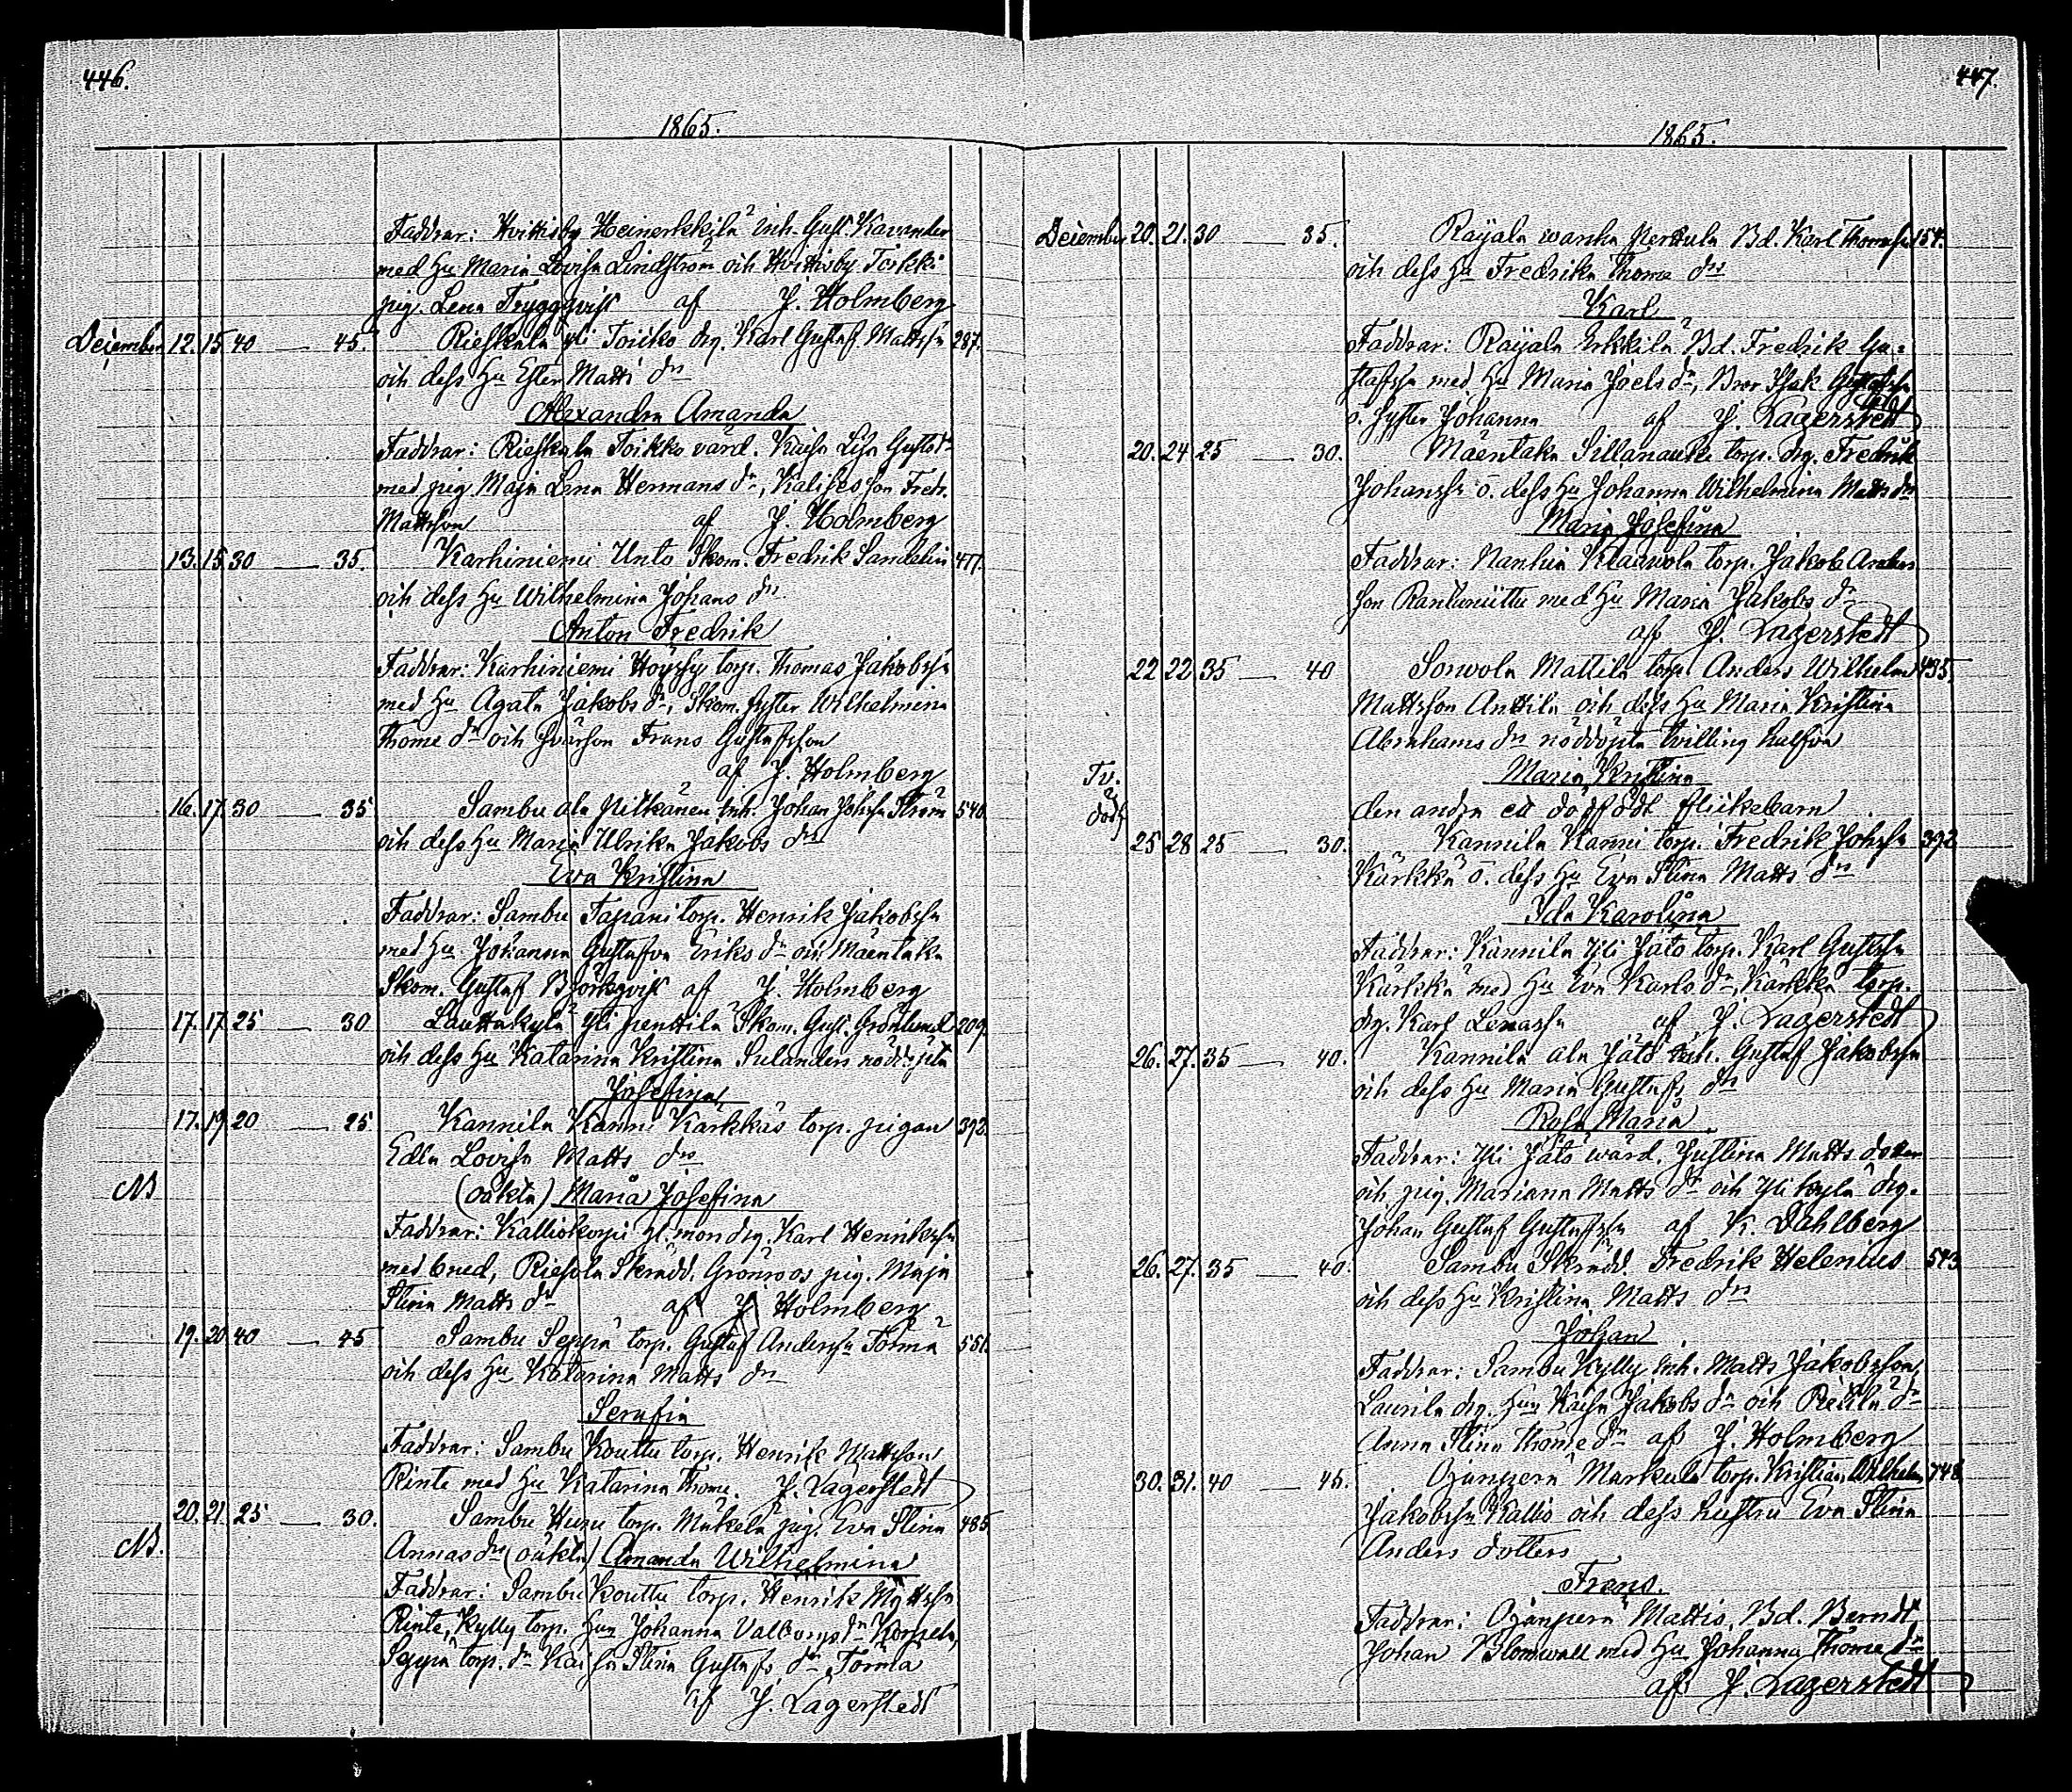 446.
1865.
Faddrar: Hvittisby Heinerkkilä inh. Gust. Kavander
med Hu Maria Lovisa Lindström och Hvittisby Toikki
pig. Lena Tryggqvist af J. Holmberg
December 12. 15. 40 — 45. Rieskala yli Toikko drg. Karl Gustaf Mattssn 287.
och dess Hu Ester Matts dr
Alexandra Amanda
Faddrar: Rieskala Toikko värd. Kaisa Lisa Gustsdr
med pig. Maja Lena Hermans dr, Kalises son Fredr.
Mattsson af J. Holmberg
13. 15. 30 — 35. Karhiniemi Unto Skom. Fredrik Sandelin 477.
och dess Hu Wilhelmina Johans dr
Anton Fredrik
Faddrar: Karhiniemi torp. Thomas Jakobssn
med Hu Agata Jakobs dr, Skom. syster Wilhelmina
Thome dr och Frans Gustafsson
af J. Holmberg
16. 17. 30 — 35 Sambu ala Pitkänen inh. Johan Johssn Ström 540.
och dess Hu Maria Ulrika Jakobs dr
Eva Kristina
Faddrar: Sambu Tapani torp. Henrik Jakobssn
med Hu Johanna Gustafva Eriks dr och Mäentaka
Skom. Gustaf Björkqvist af J. Holmberg
17. 17. 25 — 30 Lauttakylä yli Penttilä Skom. Gust. Grönlund 209.
och dess Hu Katarina Kristina Sulanders nöddöpta
Josefina
17. 19. 20 — 25 Kannila Kanni Kärkkäs torp. pigan 392.
Edla Lovisa Matts drs
NB (oäkta) Maria Josefina
Faddrar: Kalliokorpi drg. Karl Henrikssn
med Skrädd. Grönroos pig. Maja
Stina Matts dr af J. Holmberg
19. 20. 40 — 45 Sambu Seppä torp. Gustaf Anderssn Törmä 551.
och dess Hu Katarina Matts dr
Serafia
Faddrar: Sambu Kouttu torp. Henrik Mattsson
Rinte med Hu Katarina Thome. J. Lagerstedt
20. 21. 25 — 30. Sambu Huru torp. Mäkelä pig. Eva Stina 485
NB. Annas dr (oäkta) Amanda Wilhelmina
Faddrar: Sambu Kouttu torp. Henrik Mattssn
Rinte, Kylly torp. Hun Johanna Valborgs dr Korpela,
Seppä torp. dr Kaisa Stina Gustafs dr Törmä
af J. Lagerstedt
447.
1865.
December 20. 21. 30 — 35. Raijala wanha Perttula Bd. Karl Thomassn 154.
och dess Hu Fredrika Thome drs
Karl
Faddrar: Raijala Erkkilä Bd. Fredrik Gu=
stafssn med Hu Maria Joels dr, Bror Isak Gustafssn
o. syster Johanna af J. Lagerstedt
20. 24. 25 — 30. Mäentaka Sillanauke torp. drg. Fredrik
Johanssn o. dess Hu Johanna Wilhelmina Matts drs
Maria Josefina
Faddrar: Nanhia Klaawola torp. Jakob Anders
son Rantaniittu med Hu Maria Jakobs dr
af J. Lagerstedt
22 22 35 — 40 Sorvola Mattila torp. Anders Wilhelm 435.
Mattsson Anttila och dess Hu Maria Kristina
Abrahams dr nöddöpta tvilling hälfva
Tv. Maria Kristina
döds den andra ett dödfödt flickebarn
25 28 25 — 30. Kannila Kanni torp. Fredrik Johssn 392
Kärkkä o. dess Hu Eva Stina Matts drs
Ida Karolina
Faddrar: Kannila Yli Jätö torp. Karl Gustssn
Kärkkä med Hu Eva Karls dr, Kärkkä torp.
drg. Karl Lenassn af J. Lagerstedt
26. 27. 35 — 40. Kannila ala Jätö inh. Gustaf Jakobssn
och dess Hu Maria Gustafs drs
Rosa Maria
Faddrar: Yli Jätö wärd. Justina Matts dotter
och pig. Mariana Matts dr och Yli kylä drg.
Johan Gustaf Gustafssn af K. Dahlberg
26. 27. 35 — 40. Sambu Skrädd Fredrik Helenius 543
och dess Hu Kristina Matts drs
Johan
Faddrar: Sambu Kylly inh. Matts Jakobsson,
Laurila drg. Hun Kaisa Jakobs dr och dr
Anna Stina Thome dr af J. Holmberg
30. 31. 40 — 45. Ojanperä Markula torp. Kristian Wilhelm 748
Jakobssn Kallio och dess hustru Eva Stina
Anders dotters
Frans.
Faddrar: Ojanperä Mattis, Bd. Berndt
Johan Blomwall med Hu Johanna Thome dr
af J. Lagerstedt